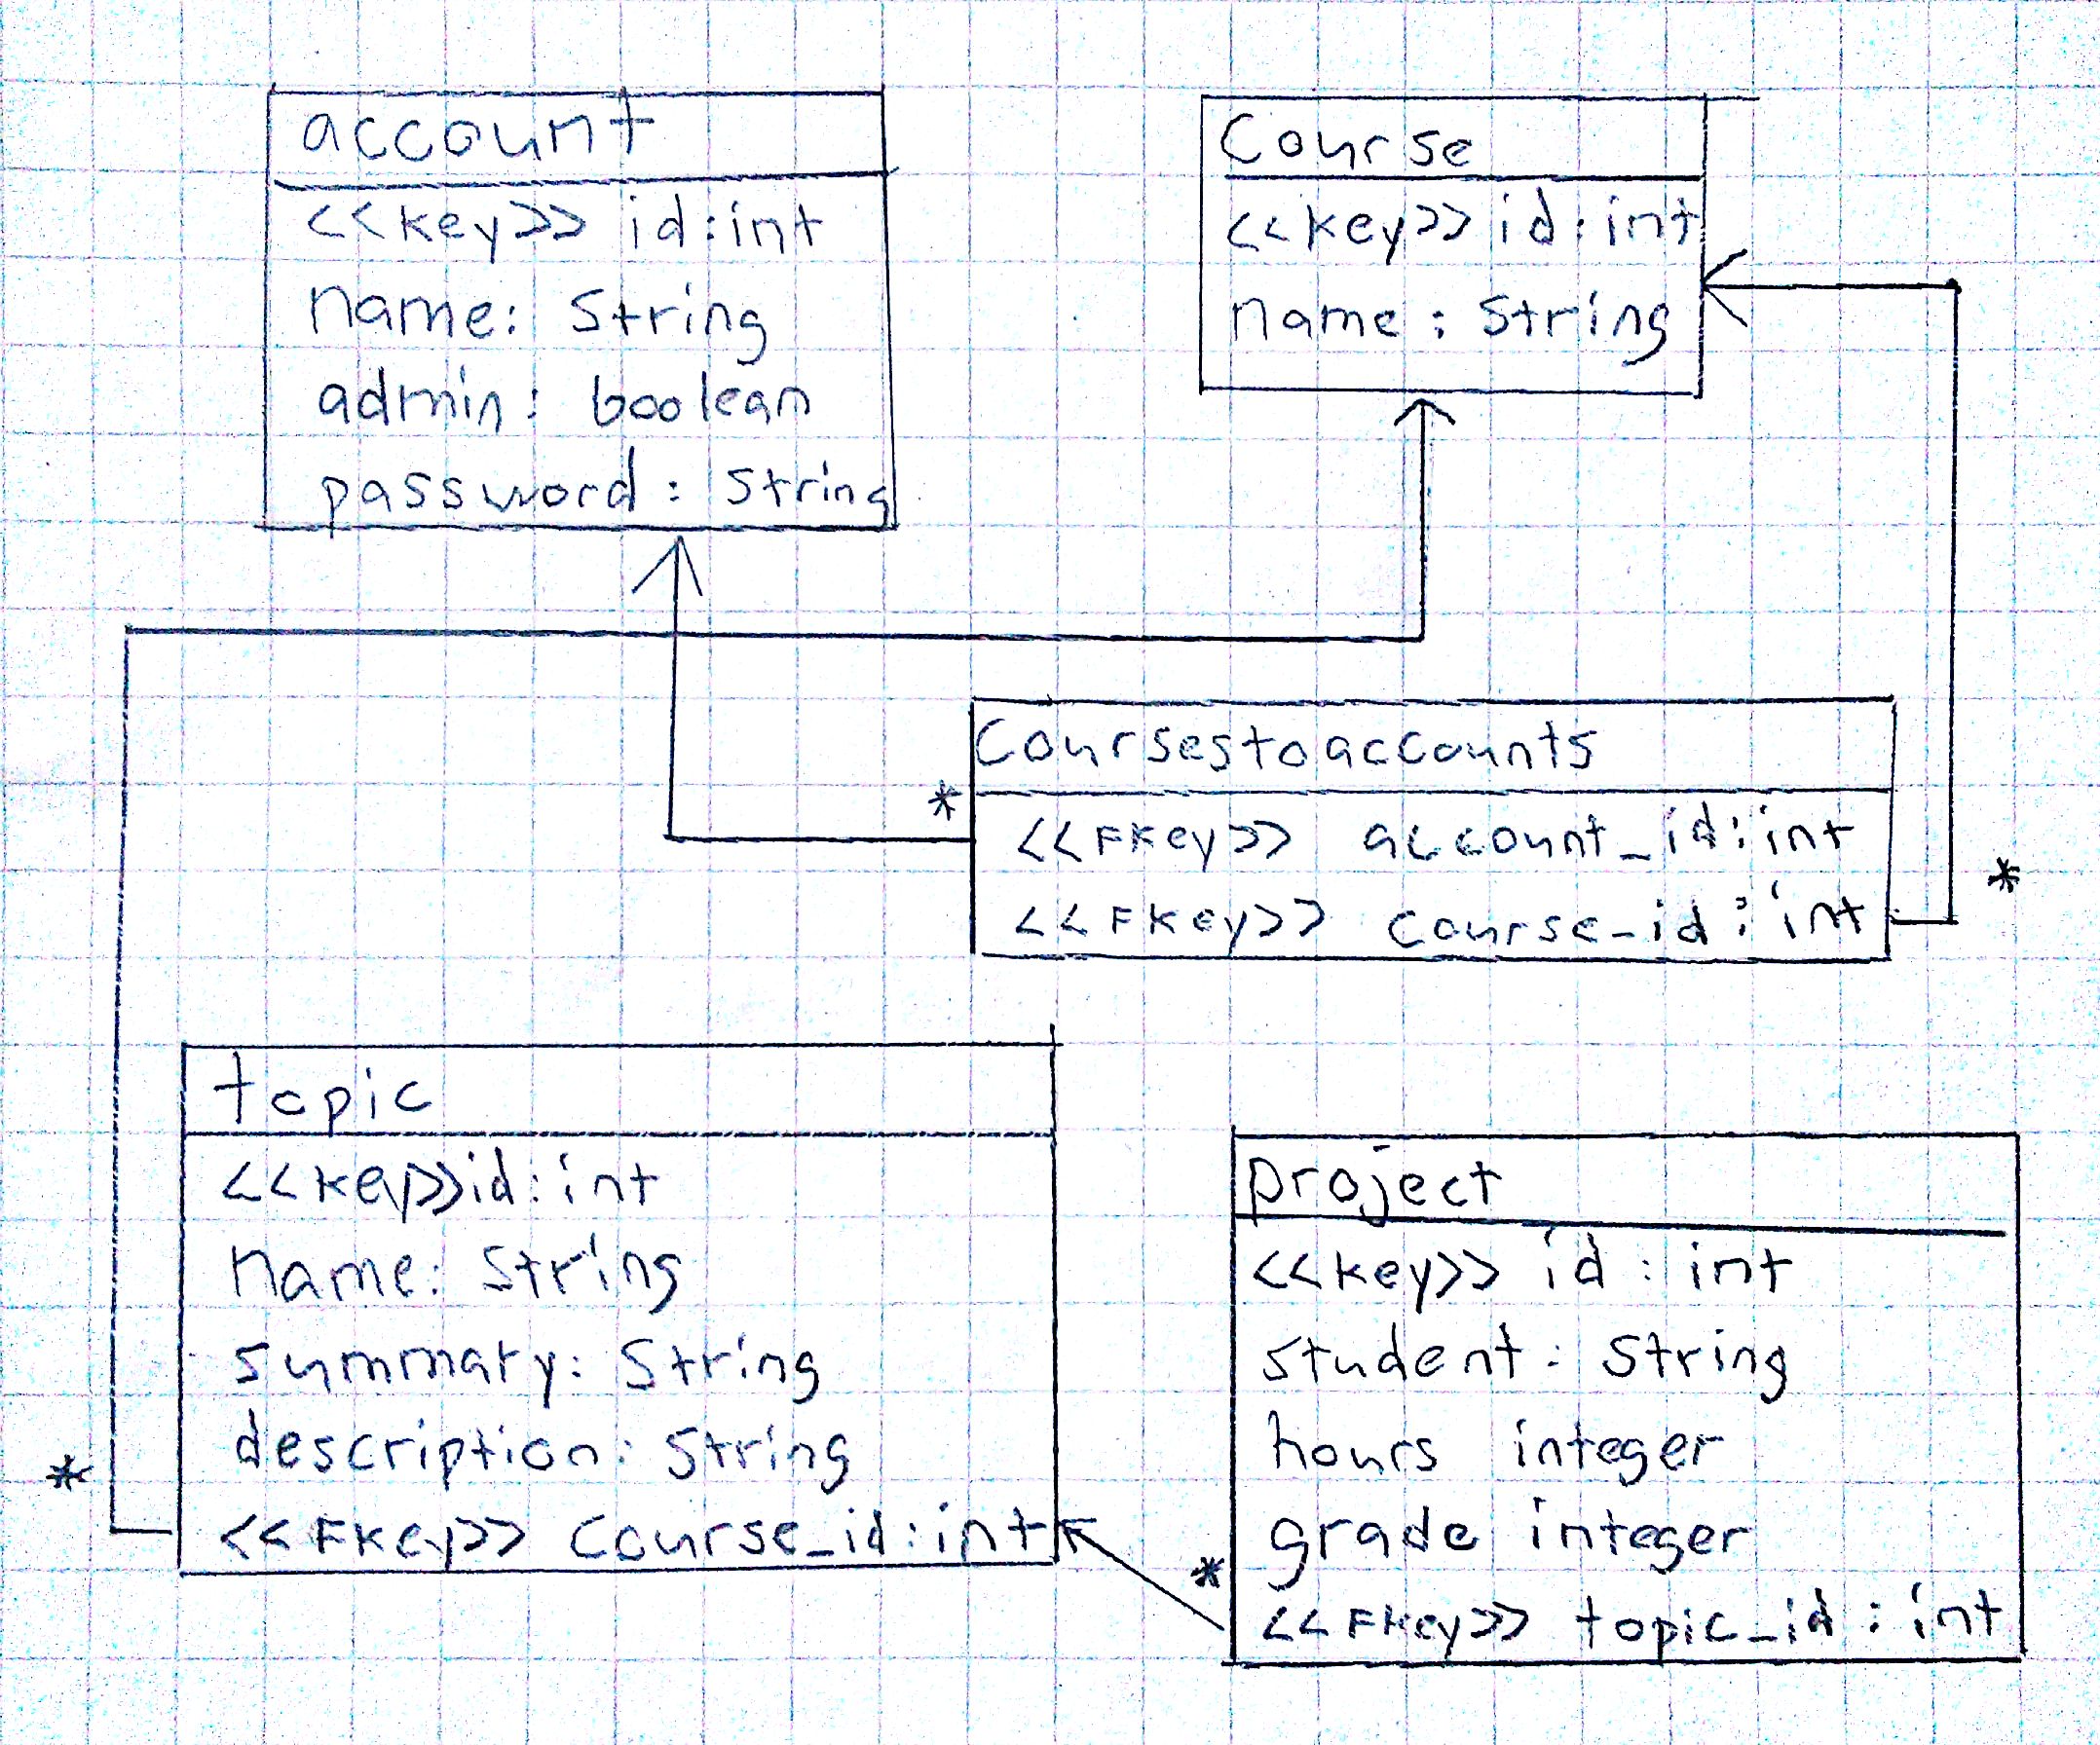 account
<<key>> id:int
name: String
admin: boolean
password: String
Course
<<key>> id:int
name: String
Coursestoaccounts
*
<<Fkey>> account_id:int
<<Fkey>> course_id:int
*
topic
<<key>>id:int
name: String
summary: String
description: String
*
<<Fkey>> Course_id:int
project
<<key>> id: int
student: String
hours integer
grade integer
*
<<Fkey>> topic_id: int